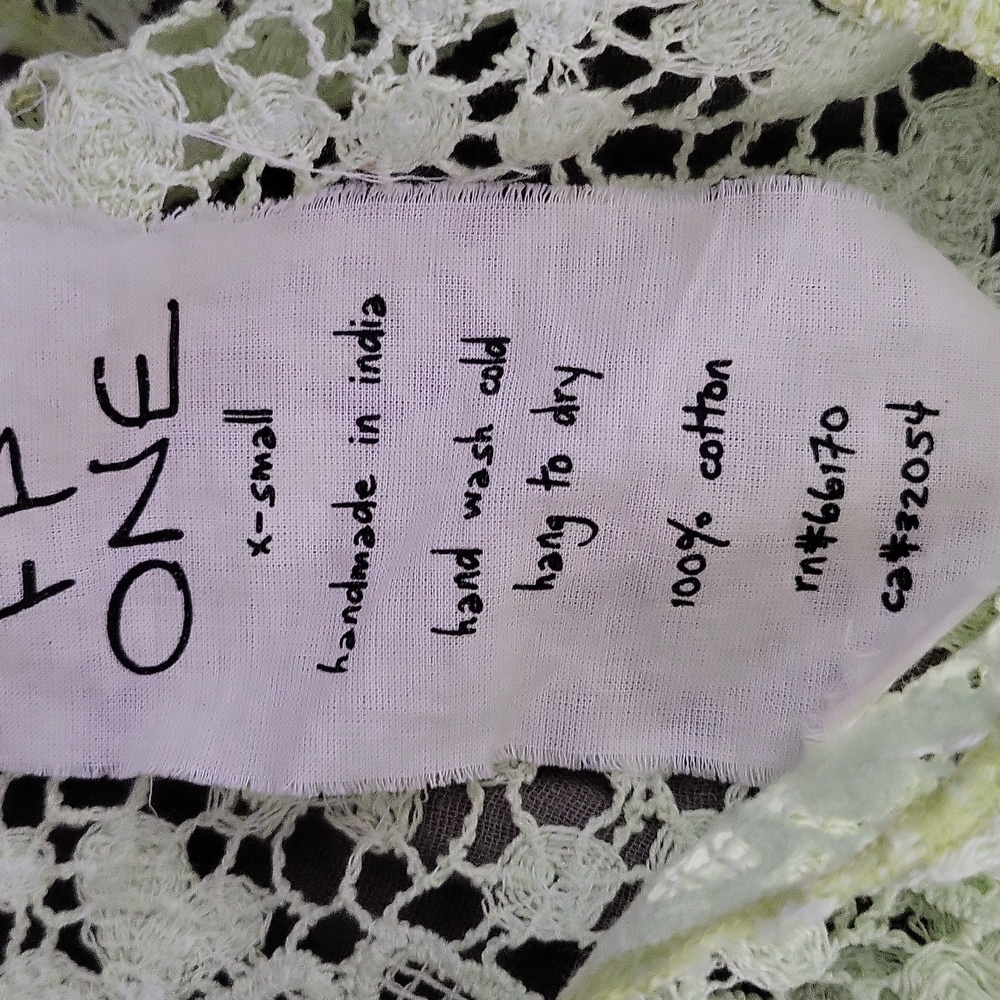 ONE
x-small
handmade in india
hand wash cold
hang to dry
100% cotton
rn#66170
ca#32054